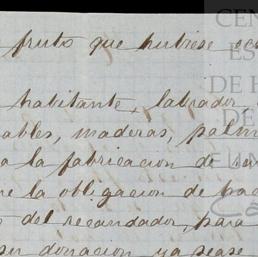 fruto que hubiese
habitante, labrador,
ables, maderas, palm
a la fabricacion de ser
e la obligacion de hac
del recaudador, para
su donacion ya sease
CEN
ES
DE H
DE
CU